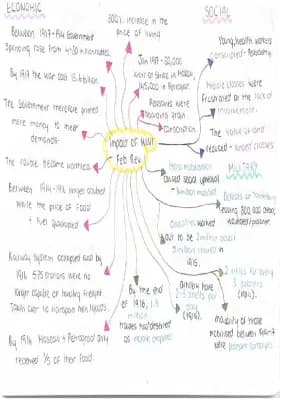 ECONOMIC
Between 1914-
Government
Spending rose from 4-30 million roubles.
By 1917 the war cost
The Government therefore printed
more money to meet
demands.
The rouble became worthless
Between 1914-1916 wages doubled
while the price of food
+ fuel quadrupled
Railway system collapsed and by
1916 575 stations were no
longer capable of handling freight
By 1916 Moscow + Petrograd only
received 1/3 of their food.
300% increase in the
price of living
Jan 1917 - 30,000
went on strike in Moscow,
145,000 in Petrograd.
Peasants were
hoarding grain
conscription
Impact of WW1
Feb Rev
SOCIAL
Young, health workers
conscripted -
Middle classes were
frustrated at the lack of
involvement.
The value of land
reduced - landed classes
Mass mobilisation
caused social upheaval
MILITARY
Defeats at Tannenberg
leaving 300,000 dead,
wounded / prisoner.
Casualties worked
out to be 2 million dead
3 million injured in
1915.
2 rifles for every
3 soldiers
(1914).
Artillery have
2-3 shells per
day
(1914).
By the end
of 1916, 1.5
million
troops had deserted
majority of those
mobilised between 1914-17
were peasant conscripts.